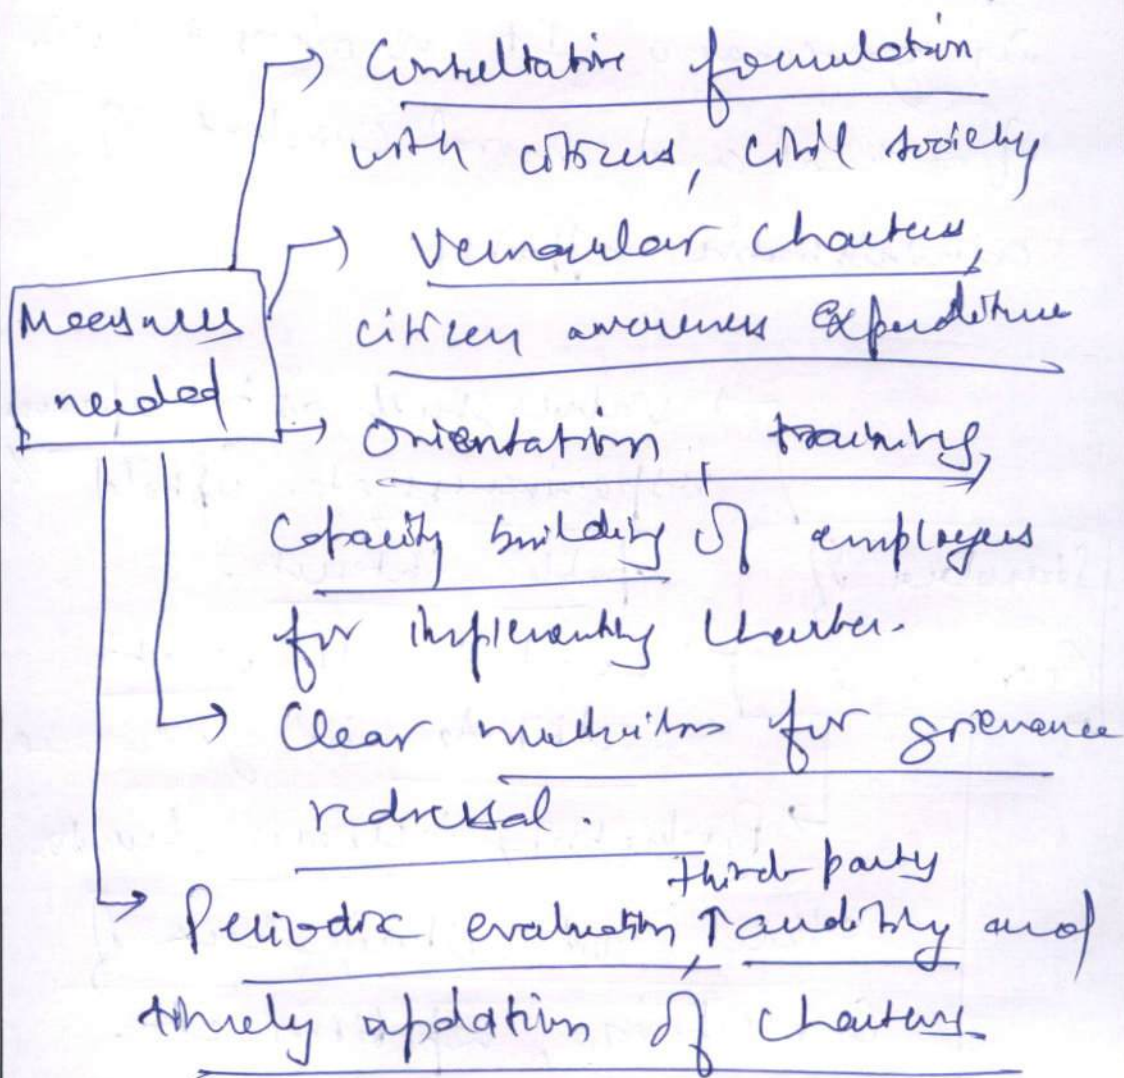 Measures
needed
Consultative formulation
with citizens, civil society
Vernacular Charters,
citizen awareness expenditure
Orientation, training,
Capacity building of employees
for implementing charter.
Clear mechanism for grievance
redressal.
Third-party
Periodic evaluation, auditing and
timely updation of Charters